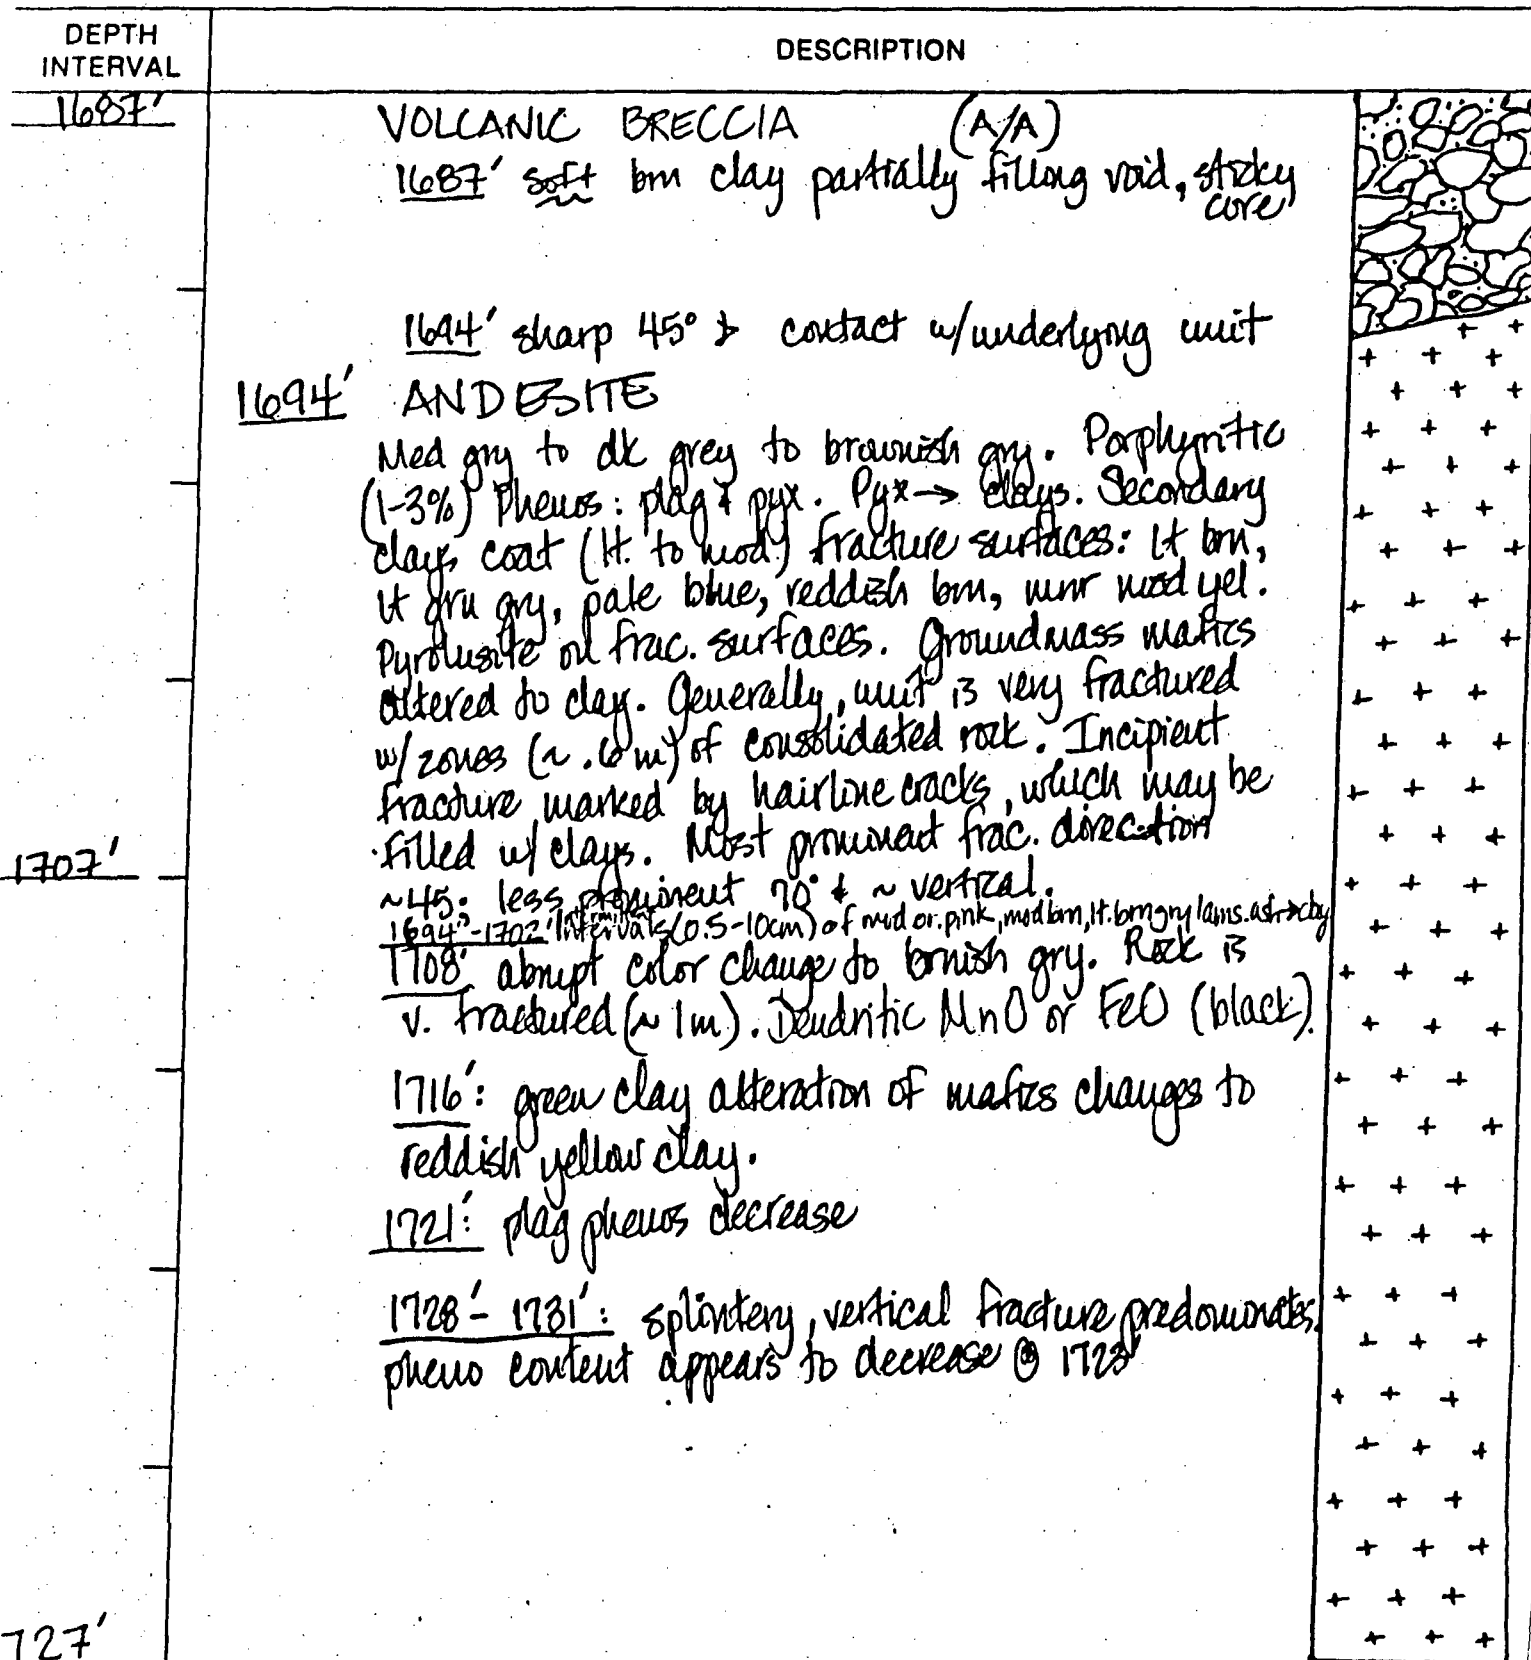 DEPTH
INTERVAL
DESCRIPTION
1687'
VOLCANIC BRECCIA (A/A)
1687' soft brn clay partially filling void, sticky
core
1694' sharp 45° contact w/underlying unit
1694' ANDESITE
Med gry to dk grey to brownish gry. Porphyritic
(1-3%) Phenos: plag & pyx. Pyx → clays. Secondary
clays coat (lt. to mod.) fracture surfaces: lt brn,
lt grn gry, pale blue, reddish brn, mnr mod yel.
Pyrolusite on frac. surfaces. Groundmass mafics
altered to clay. Generally, unit is very fractured
w/ zones (~ .6 m) of consolidated rock. Incipient
fracture marked by hairline cracks, which may be
filled w/ clays. Most prominent frac. direction
1707'
~45° less prominent 70° & ~ vertical.
1694'-1702' Intervals (0.5-10cm) of mod or. pink, mod brn, lt. brn gry lams. ash→clay
1708' abrupt color change to brnish gry. Rock is
v. fractured (~ 1m). Dendritic MnO or FeO (black).
1716': green clay alteration of mafics changes to
reddish yellow clay.
1721': plag phenos decrease
1728' - 1731': splintery, vertical fracture predominates.
pheno content appears to decrease @ 1723'
727'